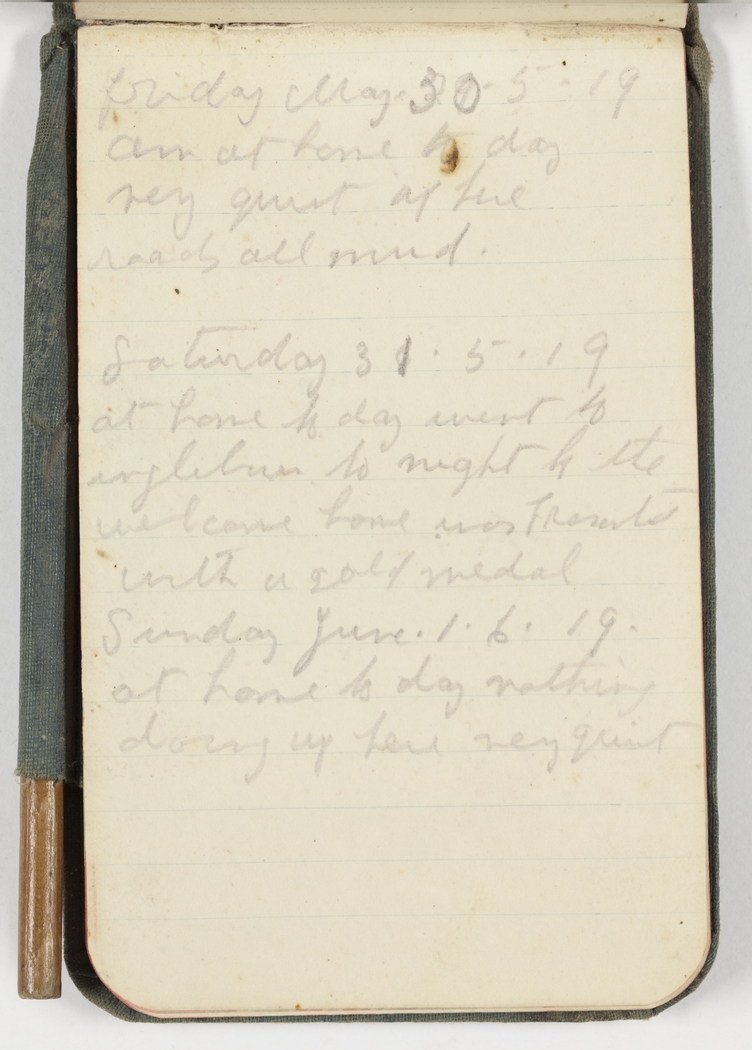 Friday May. 30. 5. 19
am at home to day
very quiet up here
roads all mud.
Saturday 31. 5. 19
at home to day went to
inglebun to night to the
welcome home was Presented
with a gold medal
Sunday June. 1. 6. 19.
at home to day nothing
doing up here very quiet